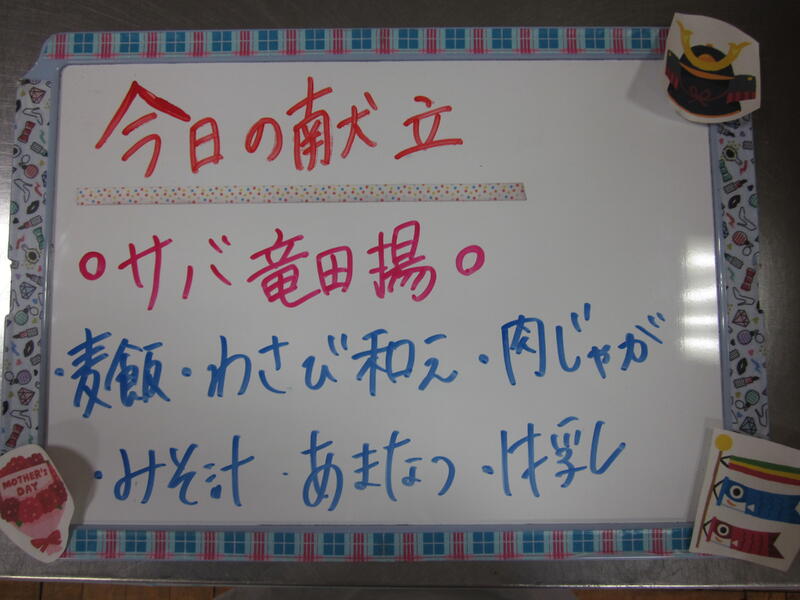 今日の献立
○サバ竜田揚○
・麦飯・わさび和え・肉じゃが
・みそ汁・あまなつ・牛乳
MOTHER'S
DAY